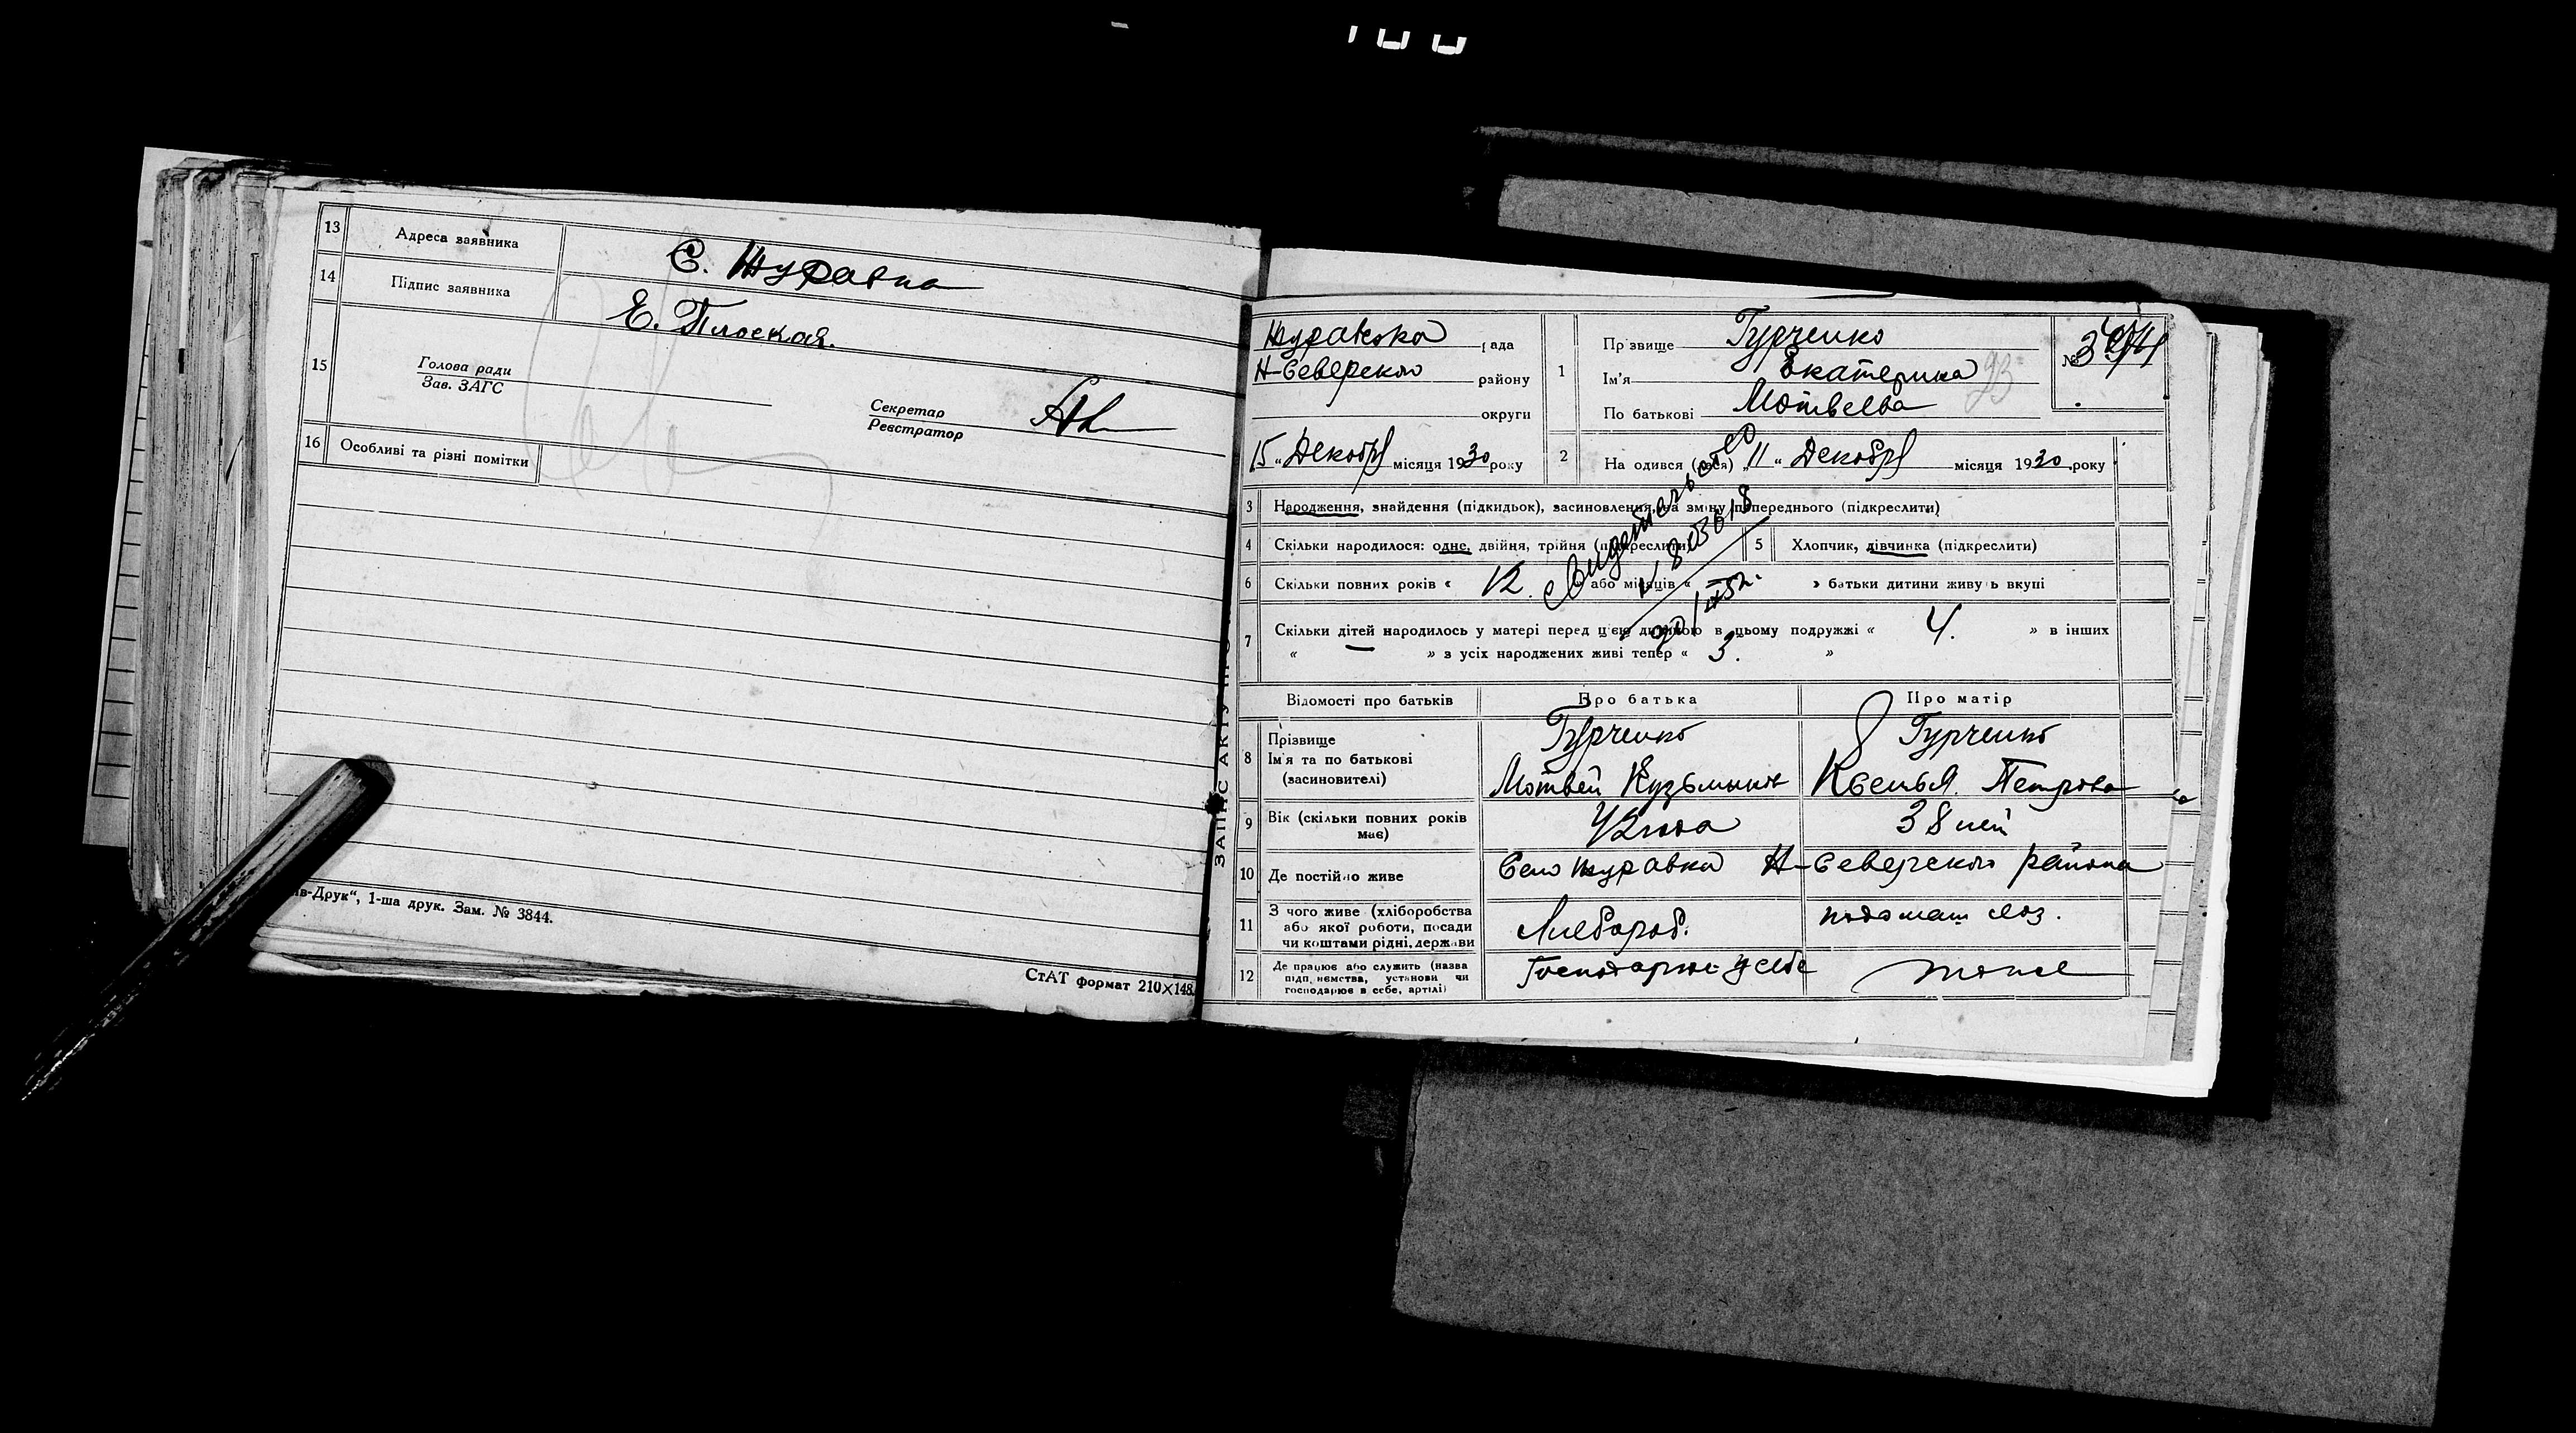 13 Адреса заявника С. Журавка
14 Підпис заявника Е. Плоская.
15 Голова ради
Зав. ЗАГС
Секретар
Реєстратор
16 Особливі та різні помітки
в-Друк“, 1-ша друк. Зам. № 3844.
СтАТ формат 210×148.
Журавска рада
Н-Северского району
округи
15 „ Декабря місяця 1930 року
1 Прізвище Гурченко
Ім'я Екатерина 93
По батькові Мотвеева
№
2 На одився (лася) „ 11 “ Декабря місяця 1930 року
3 Народження, знайдення (підкидьок), засиновлення, на зміну попереднього (підкреслити)
4 Скільки народилося: одне, двійня, трійня (підкреслити)
5 Хлопчик, дівчинка (підкреслити)
6 Скільки повних років « 12. » або місяців « » батьки дитини живуть вкупі
7 Скільки дітей народилось у матері перед цією дитиною в цьому подружжі « 4. » в інших
« » з усіх народжених живі тепер « 3. »
Свидетельство
Відомості про батьків Про батька Про матір
8 Прізвище Гурченко Гурченко
Ім'я та по батькові
(засиновителі) Мотвей Кузьмынов Ксенья Петрова
9 Вік (скільки повних років
має) 42 года 38 лет
10 Де постійно живе Село Журавка Н-Северского района
11 З чого живе (хліборобства
або якої роботи, посади
чи коштами рідні, держави Хлебороб. подомаш хоз.
12 Де працює або служить (назва
підприємства, установи чи
господарює в себе, артілі) Господарює у себе тоже
ЗАПИС АКТУ ПРО